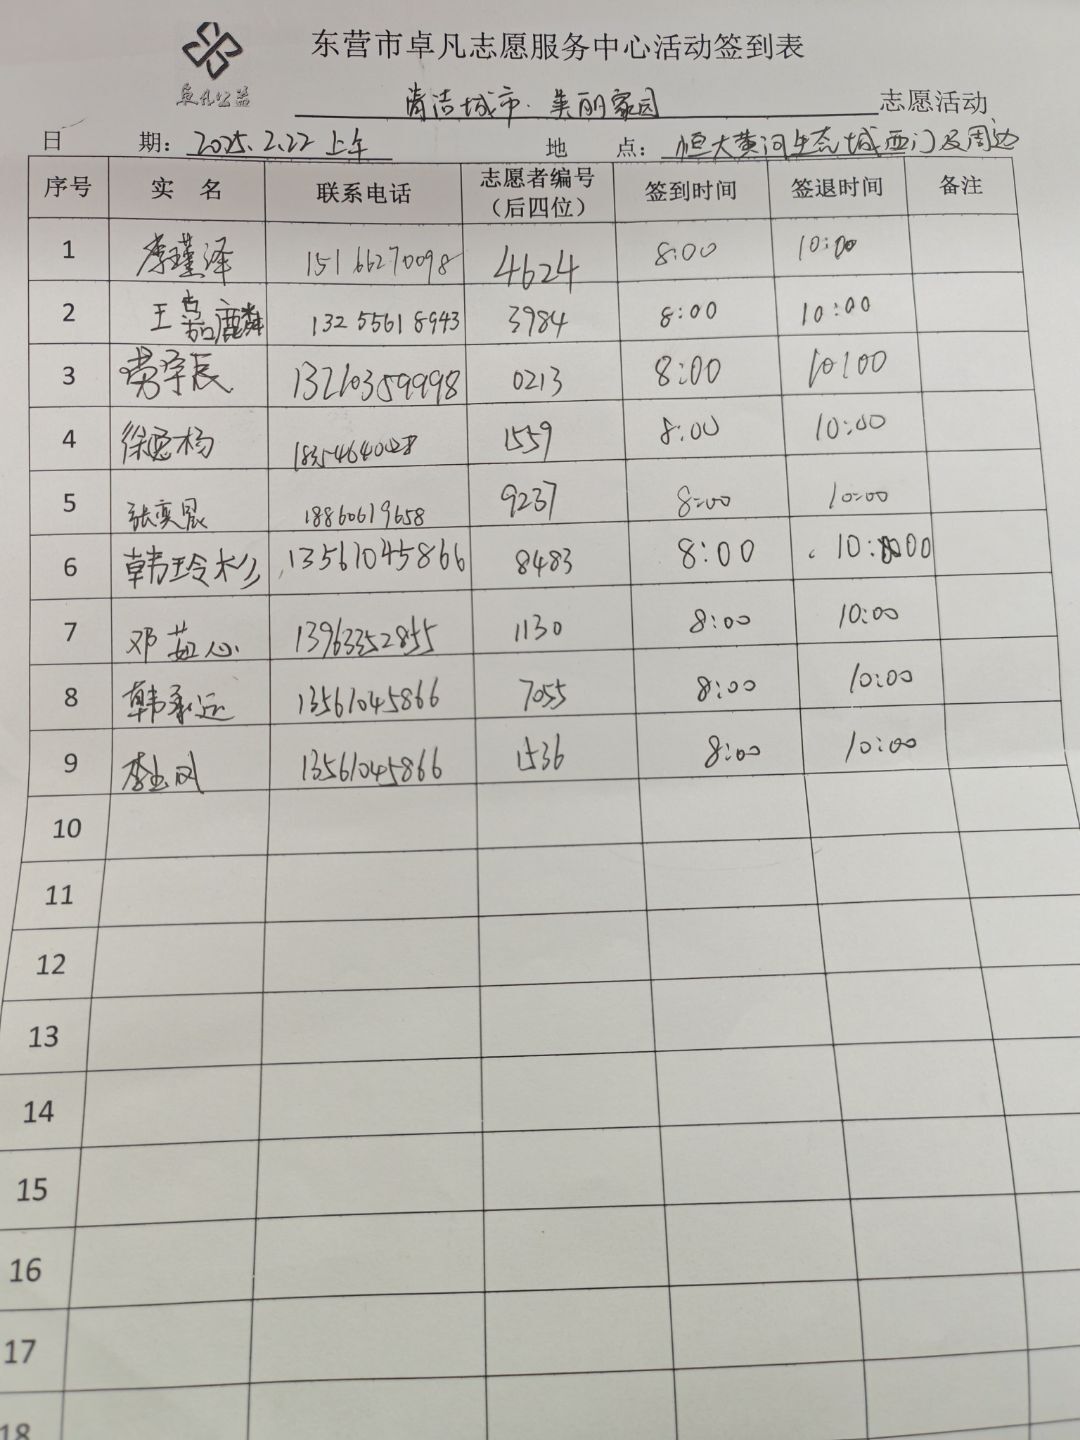 东营市卓凡志愿服务中心活动签到表
卓凡公益
清洁城市·美丽家园 志愿活动
日 期: 2025.2.22 上午 地 点: 恒大黄河生态城西门及周边
序号 实 名 联系电话 志愿者编号(后四位) 签到时间 签退时间 备注
1 李瑾泽 15166270098 4624 8:00 10:00
2 王嘉麟 13255618943 3984 8:00 10:00
3 劳宇辰 13210359998 0213 8:00 10:00
4 徐 杨 1559 8:00 10:00
5 张奕晨 18860619658 9237 8:00 10:00
6 韩玲杉 13561045866 8483 8:00 10:00
7 邓茹心 13963352855 1130 8:00 10:00
8 韩承远 13561045866 7055 8:00 10:00
9 李玉凤 13561045866 1536 8:00 10:00
10
11
12
13
14
15
16
17
18